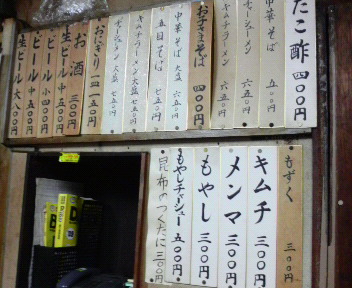 たこ酢 四〇〇円
キムチラーメン 六五〇円
お子さまそば 四〇〇円
中華そば 大盛 六五〇円
五目そば 七五〇円
キムチラーメン 大盛 七五〇円
チャーシューメン 大盛 七五〇円
おにぎり 一皿 一五〇円
お酒 三〇〇円
生ビール 中 五〇〇円
ビール 小 四〇〇円
ビール 中 五〇〇円
生ビール 大 八〇〇円
もずく 三〇〇円
キムチ 三〇〇円
メンマ 三〇〇円
もやし 三〇〇円
もやしチャーシュー 五〇〇円
昆布のつくだに 三〇〇円